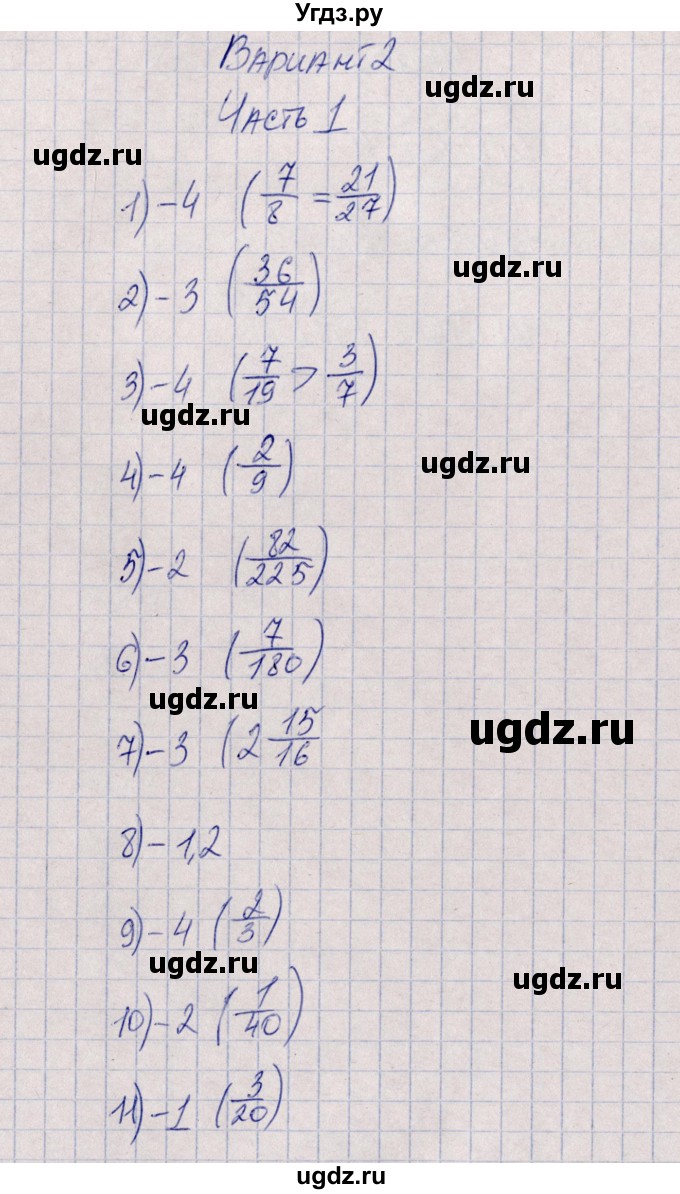 Угдз.ру
Вариант 2
ugdz.ru
Часть 1
ugdz.ru
1) - 4 (7/8 = 21/27)
ugdz.ru
2) - 3 (36/54)
3) - 4 (7/19 > 3/7)
ugdz.ru
4) - 4 (2/9)
ugdz.ru
5) - 2 (82/225)
6) - 3 (7/180)
ugdz.ru
7) - 3 (2 15/16
ugdz.ru
8) - 1,2
9) - 4 (2/3)
ugdz.ru
ugdz.ru
10) - 2 (1/40)
11) - 1 (3/20)
ugdz.ru